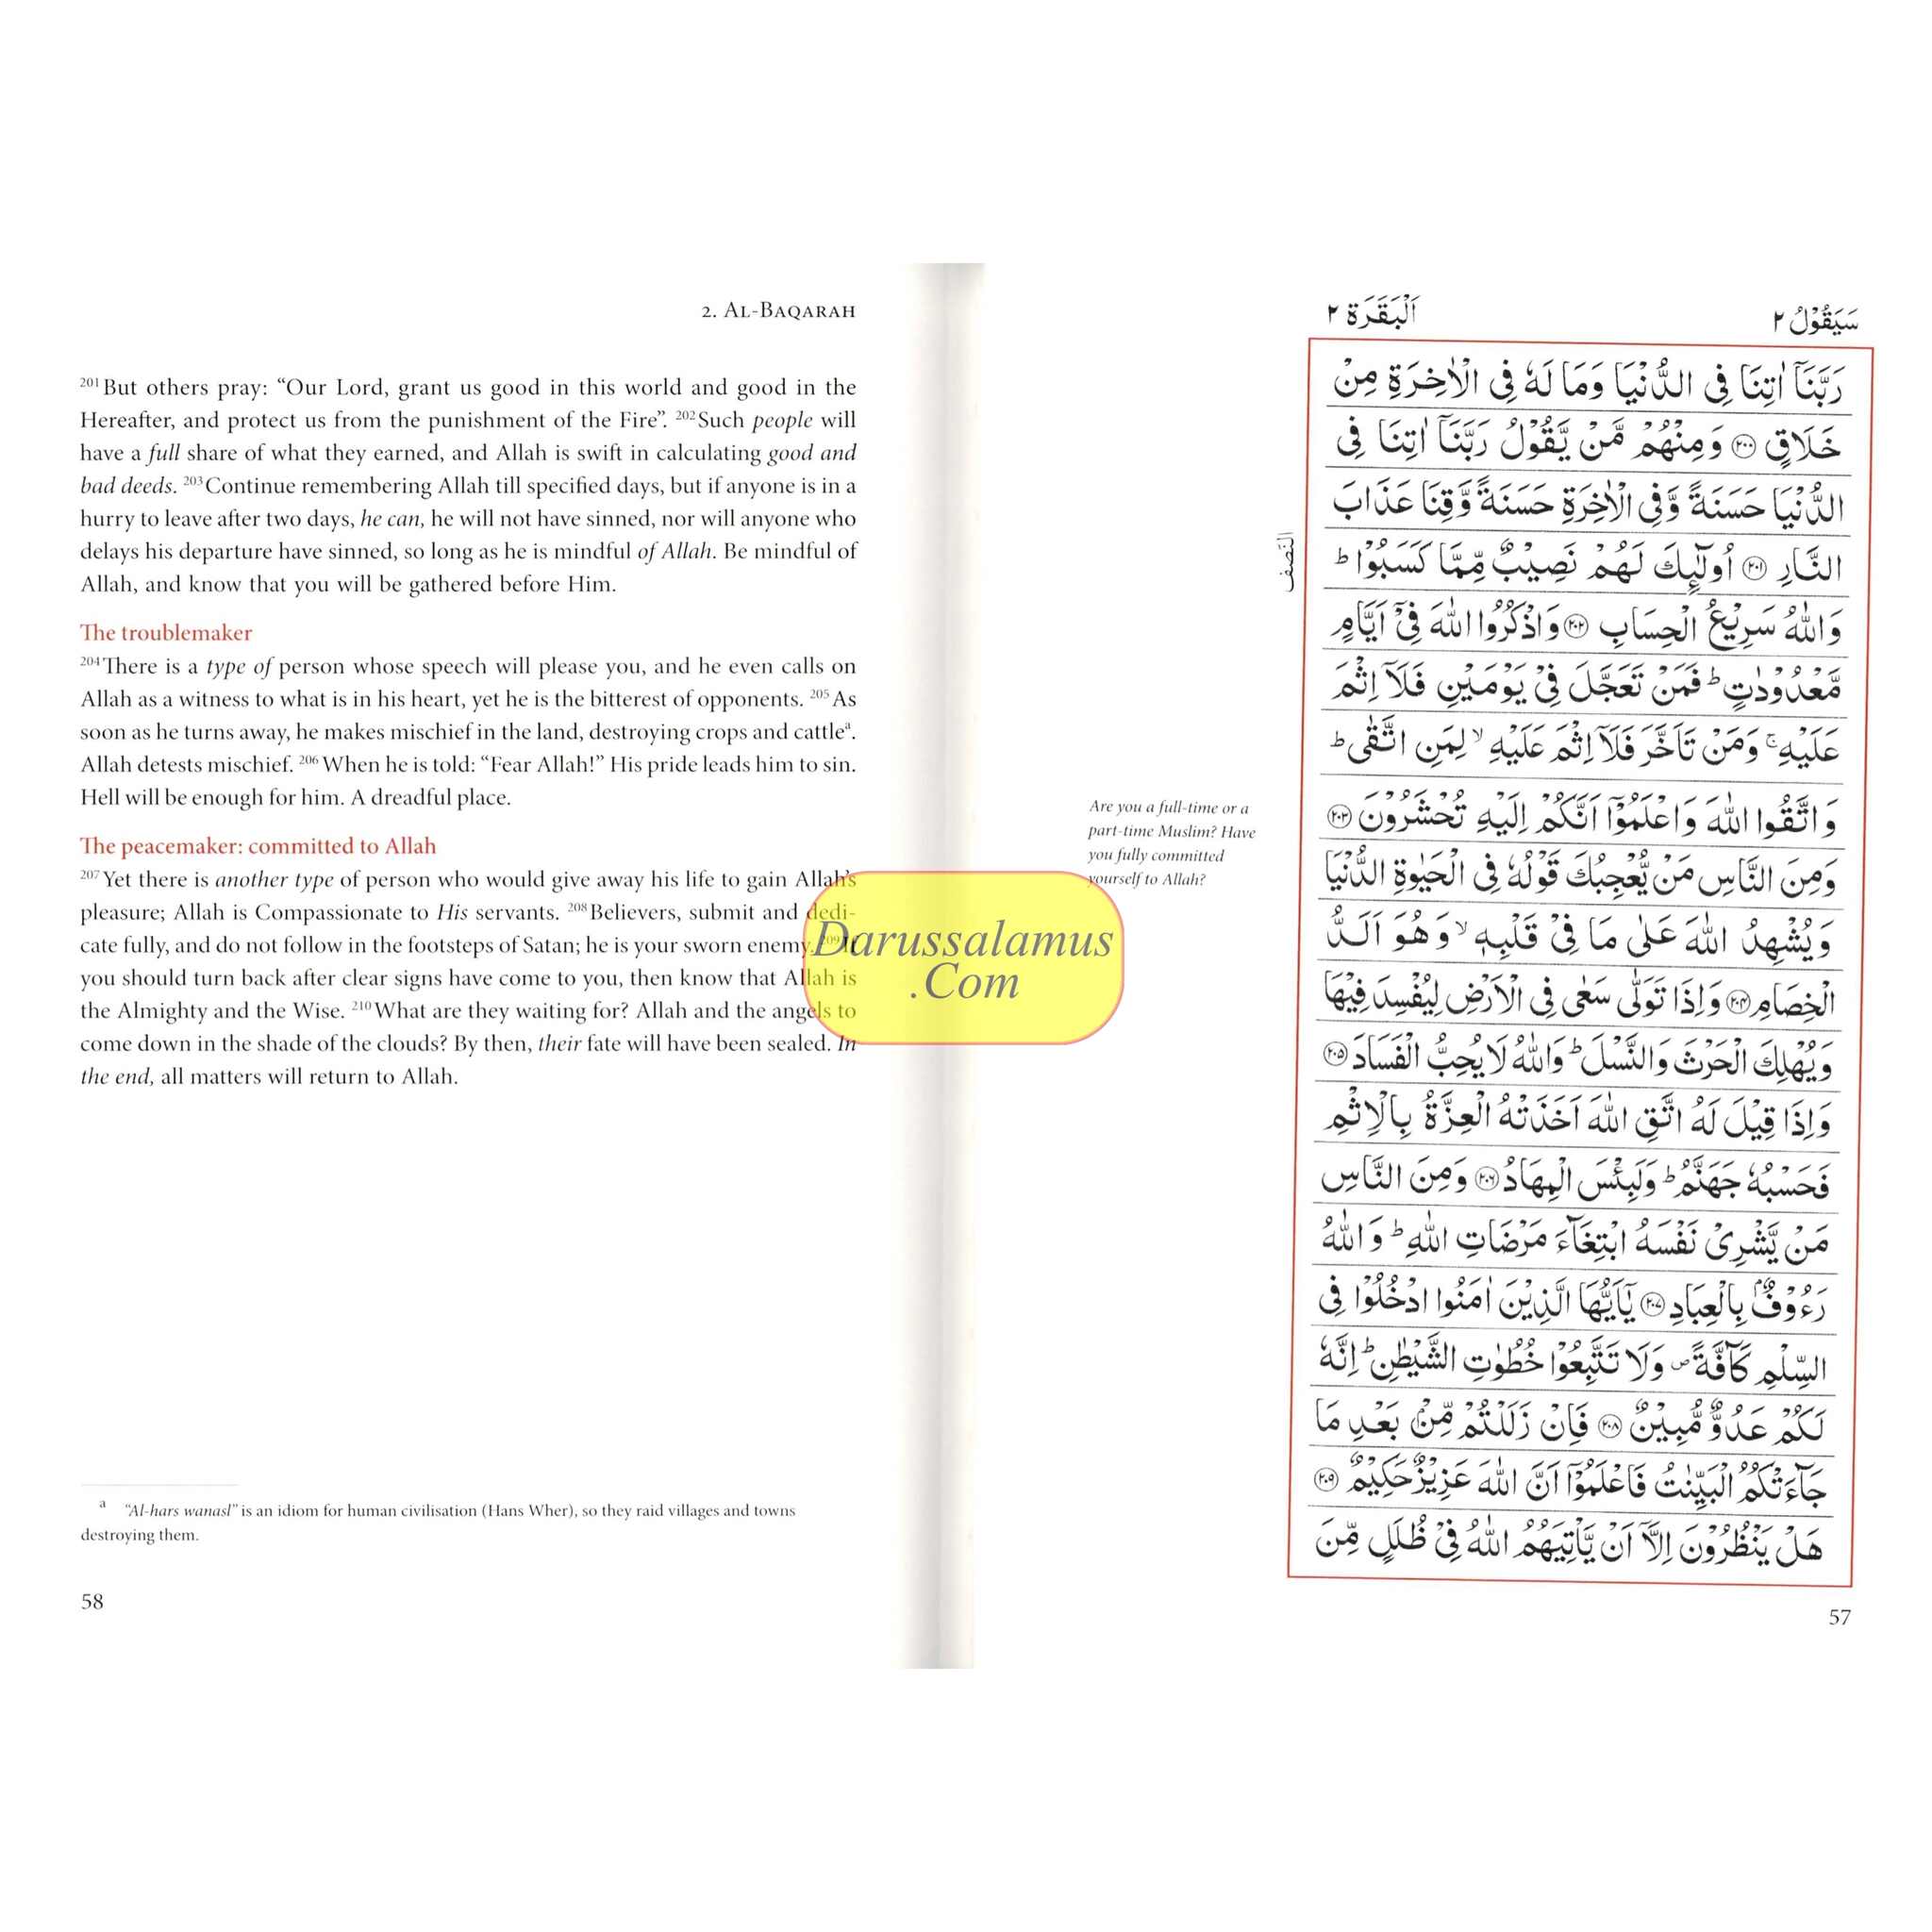 2. AL-BAQARAH
201 But others pray: “Our Lord, grant us good in this world and good in the
Hereafter, and protect us from the punishment of the Fire”. 202 Such people will
have a full share of what they earned, and Allah is swift in calculating good and
bad deeds. 203 Continue remembering Allah till specified days, but if anyone is in a
hurry to leave after two days, he can, he will not have sinned, nor will anyone who
delays his departure have sinned, so long as he is mindful of Allah. Be mindful of
Allah, and know that you will be gathered before Him.
The troublemaker
204 There is a type of person whose speech will please you, and he even calls on
Allah as a witness to what is in his heart, yet he is the bitterest of opponents. 205 As
soon as he turns away, he makes mischief in the land, destroying crops and cattleª.
Allah detests mischief. 206 When he is told: “Fear Allah!” His pride leads him to sin.
Hell will be enough for him. A dreadful place.
The peacemaker: committed to Allah
207 Yet there is another type of person who would give away his life to gain Allah’s
pleasure; Allah is Compassionate to His servants. 208 Believers, submit and dedi-
cate fully, and do not follow in the footsteps of Satan; he is your sworn enemy. 209 If
you should turn back after clear signs have come to you, then know that Allah is
the Almighty and the Wise. 210 What are they waiting for? Allah and the angels to
come down in the shade of the clouds? By then, their fate will have been sealed. In
the end, all matters will return to Allah.
a “Al-hars wanasl” is an idiom for human civilisation (Hans Wher), so they raid villages and towns
destroying them.
58
Darussalamus
.Com
Are you a full-time or a
part-time Muslim? Have
you fully committed
yourself to Allah?
سَيَقُوْلُ ٢
اَلْبَقَرَة ٢
النصف
رَبَّنَآ اٰتِنَا فِى الدُّنْيَا وَمَا لَهٗ فِى الْاٰخِرَةِ مِنْ
خَلَاقٍ ٢٠٠ وَمِنْهُمْ مَّنْ يَّقُوْلُ رَبَّنَآ اٰتِنَا فِى
الدُّنْيَا حَسَنَةً وَّفِى الْاٰخِرَةِ حَسَنَةً وَّقِنَا عَذَابَ
النَّارِ ٢٠١ اُولٰٓئِكَ لَهُمْ نَصِيْبٌ مِّمَّا كَسَبُوْا ط
وَاللّٰهُ سَرِيْعُ الْحِسَابِ ٢٠٢ وَاذْكُرُوا اللّٰهَ فِىْٓ اَيَّامٍ
مَّعْدُوْدٰتٍ ط فَمَنْ تَعَجَّلَ فِىْ يَوْمَيْنِ فَلَآ اِثْمَ
عَلَيْهِ ج وَمَنْ تَاَخَّرَ فَلَآ اِثْمَ عَلَيْهِ لا لِمَنِ اتَّقٰى ط
وَاتَّقُوا اللّٰهَ وَاعْلَمُوْٓا اَنَّكُمْ اِلَيْهِ تُحْشَرُوْنَ ٢٠٣
وَمِنَ النَّاسِ مَنْ يُّعْجِبُكَ قَوْلُهٗ فِى الْحَيٰوةِ الدُّنْيَا
وَيُشْهِدُ اللّٰهَ عَلٰى مَا فِىْ قَلْبِهٖ لا وَهُوَ اَلَدُّ
الْخِصَامِ ٢٠٤ وَاِذَا تَوَلّٰى سَعٰى فِى الْاَرْضِ لِيُفْسِدَ فِيْهَا
وَيُهْلِكَ الْحَرْثَ وَالنَّسْلَ ط وَاللّٰهُ لَا يُحِبُّ الْفَسَادَ ٢٠٥
وَاِذَا قِيْلَ لَهُ اتَّقِ اللّٰهَ اَخَذَتْهُ الْعِزَّةُ بِالْاِثْمِ
فَحَسْبُهٗ جَهَنَّمُ ط وَلَبِئْسَ الْمِهَادُ ٢٠٦ وَمِنَ النَّاسِ
مَنْ يَّشْرِىْ نَفْسَهُ ابْتِغَآءَ مَرْضَاتِ اللّٰهِ ط وَاللّٰهُ
رَءُوْفٌۢ بِالْعِبَادِ ٢٠٧ يٰٓاَيُّهَا الَّذِيْنَ اٰمَنُوا ادْخُلُوْا فِى
السِّلْمِ كَآفَّةً ص وَلَا تَتَّبِعُوْا خُطُوٰتِ الشَّيْطٰنِ ط اِنَّهٗ
لَكُمْ عَدُوٌّ مُّبِيْنٌ ٢٠٨ فَاِنْ زَلَلْتُمْ مِّنْۢ بَعْدِ مَا
جَآءَتْكُمُ الْبَيِّنٰتُ فَاعْلَمُوْٓا اَنَّ اللّٰهَ عَزِيْزٌ حَكِيْمٌ ٢٠٩
هَلْ يَنْظُرُوْنَ اِلَّآ اَنْ يَّاْتِيَهُمُ اللّٰهُ فِىْ ظُلَلٍ مِّنَ
57